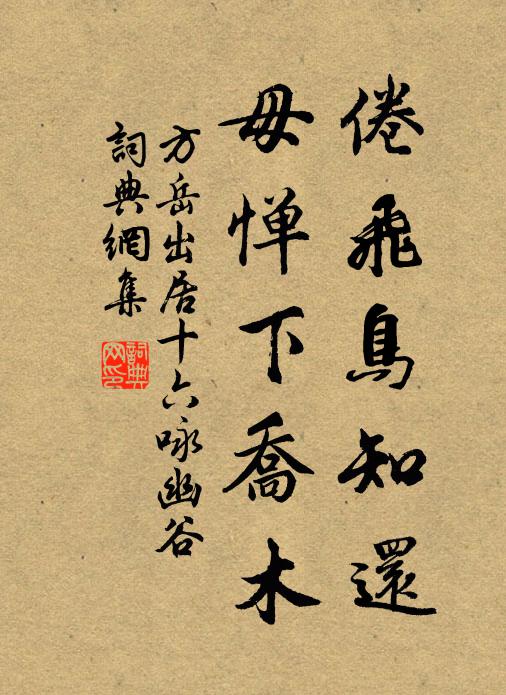 倦飛鳥知還
毋憚下喬木
方岳出居十六咏幽谷
詞典網集
詞典网印